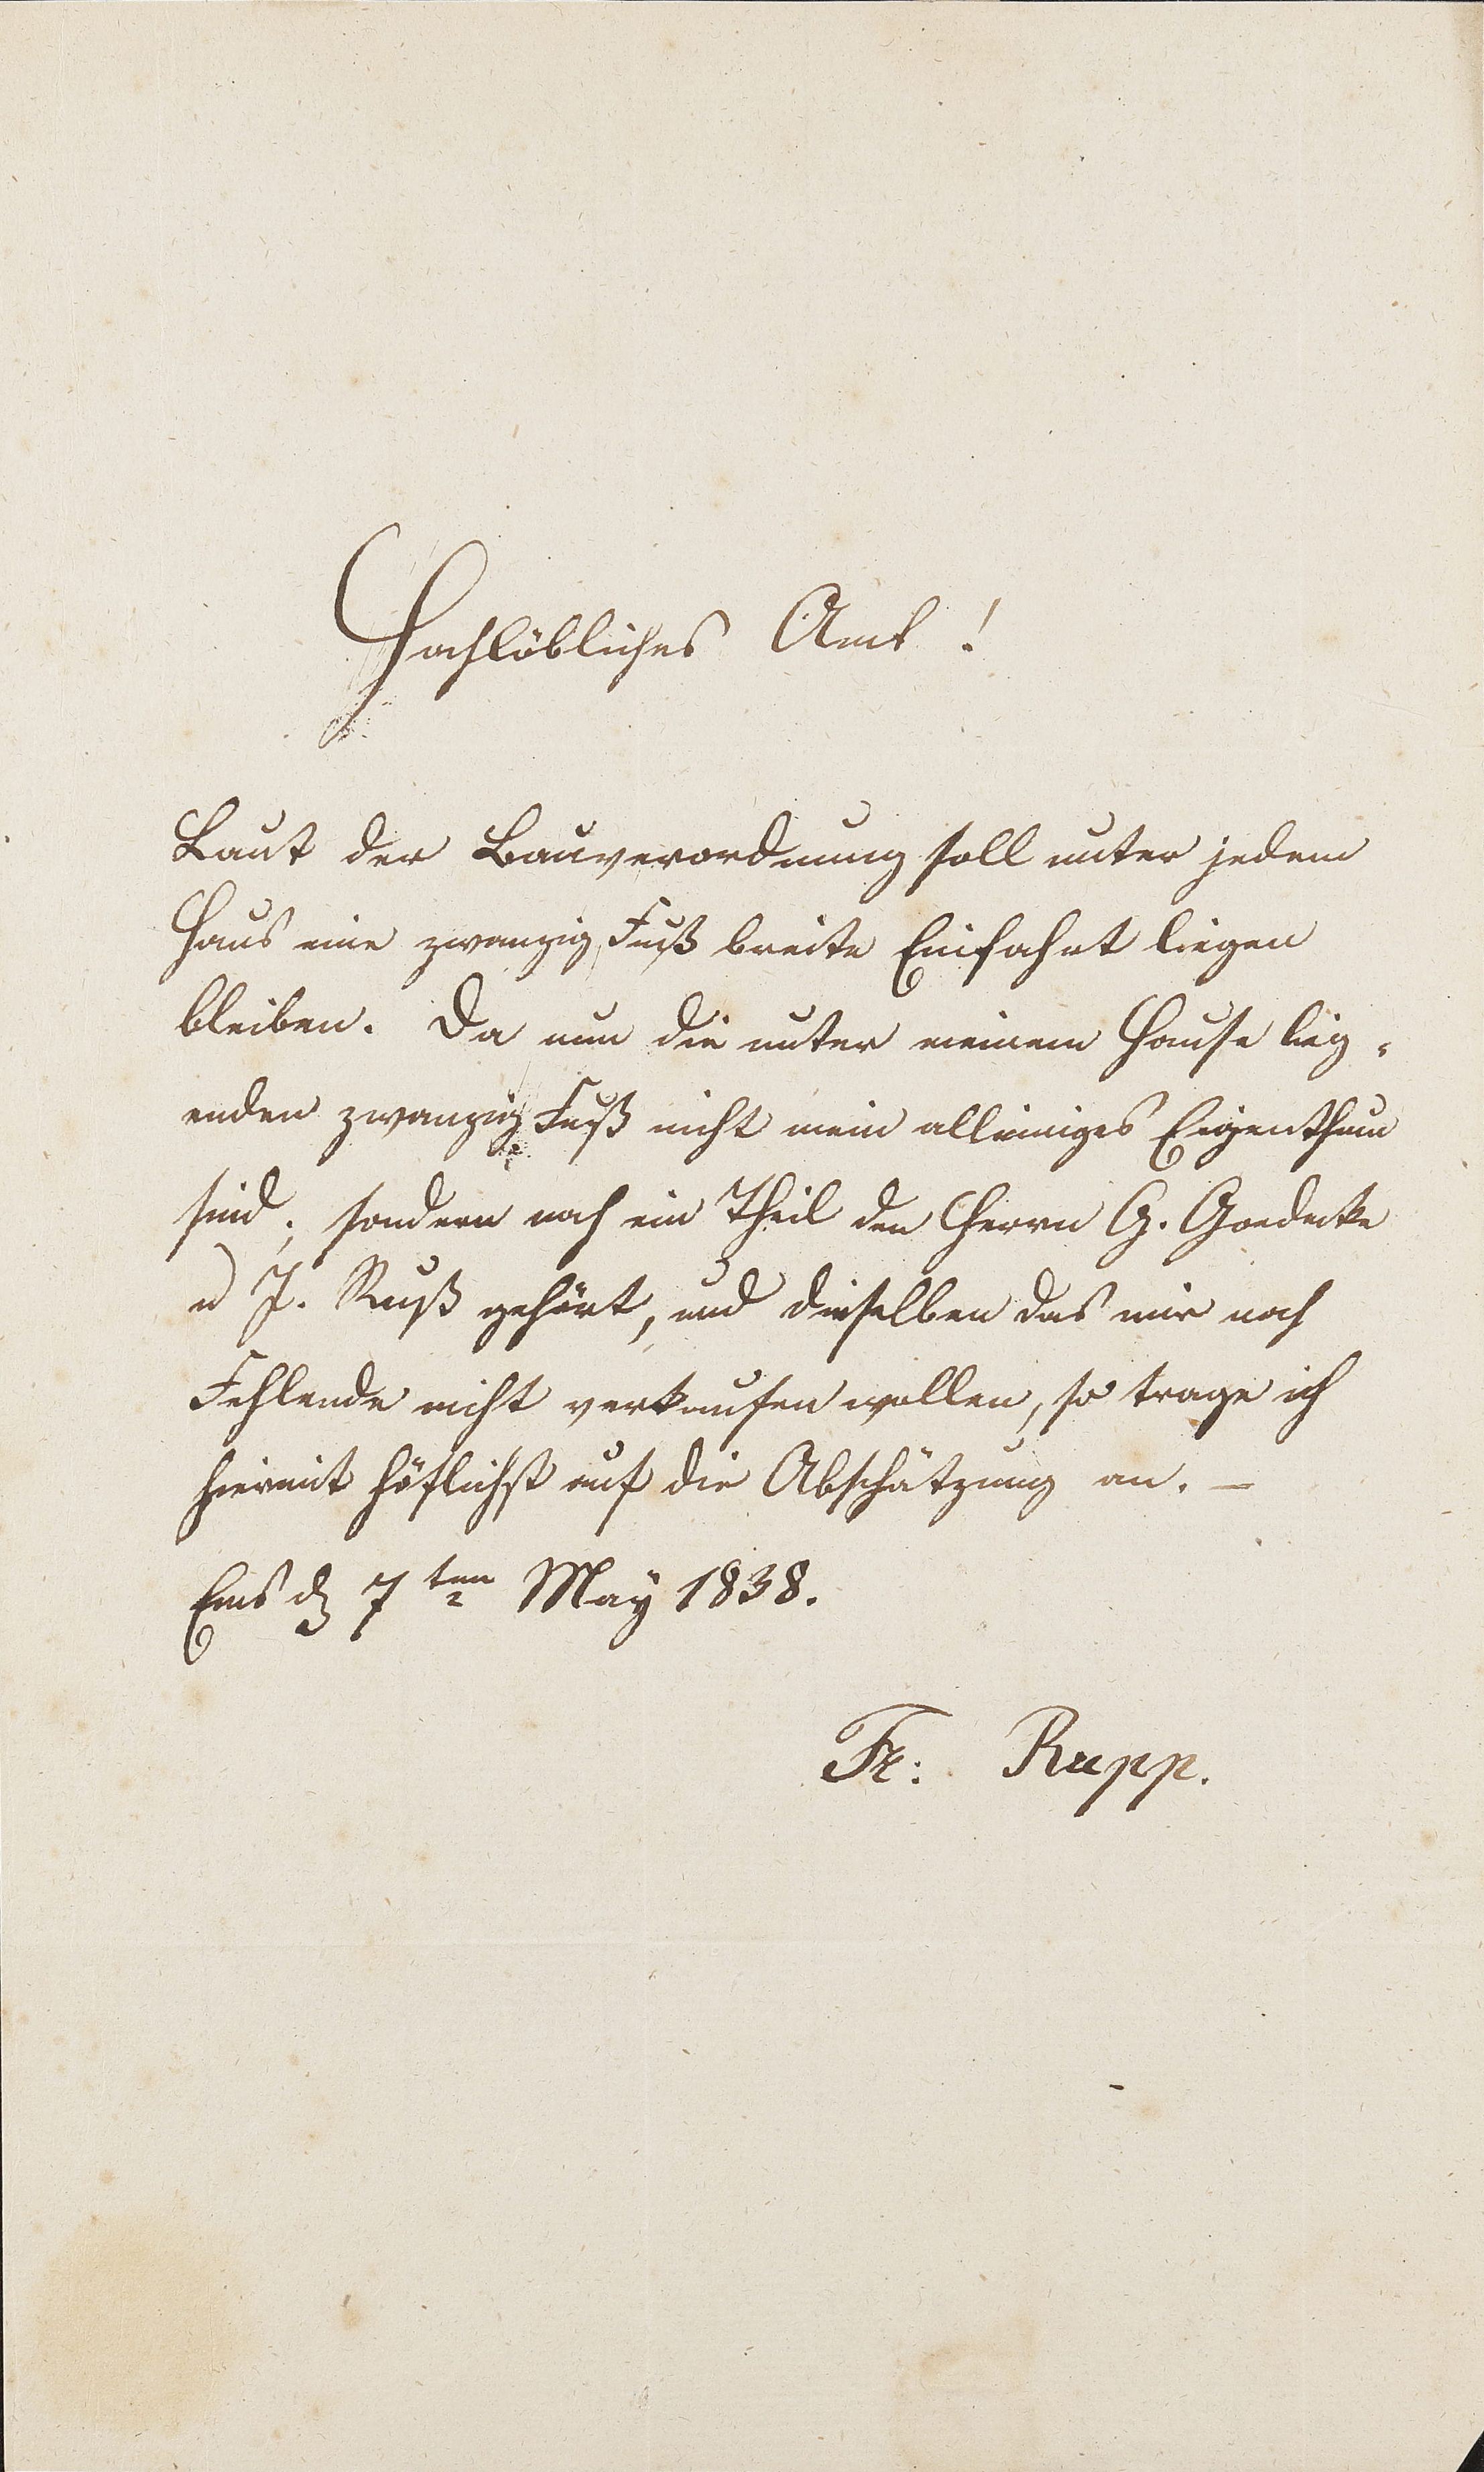 Hochlöbliches Amt!
Laut der Bauverordnung soll unter jedem
Haus eine zwanzig Fuß breite Einfahrt liegen
bleiben. Da nun die unter meinem Hause lieg-
enden zwanzig Fuß nicht mein alleiniges Eigenthum
sind; sondern noch ein Theil den Herrn G. Goedecke
u J. Ruß gehört, und dieselben das mir noch
Fehlende nicht verkaufen wollen, so trage ich
hiermit höflichst auf die Abschätzung an. –
Ems d 7ten May 1838.
Fr: Rupp.